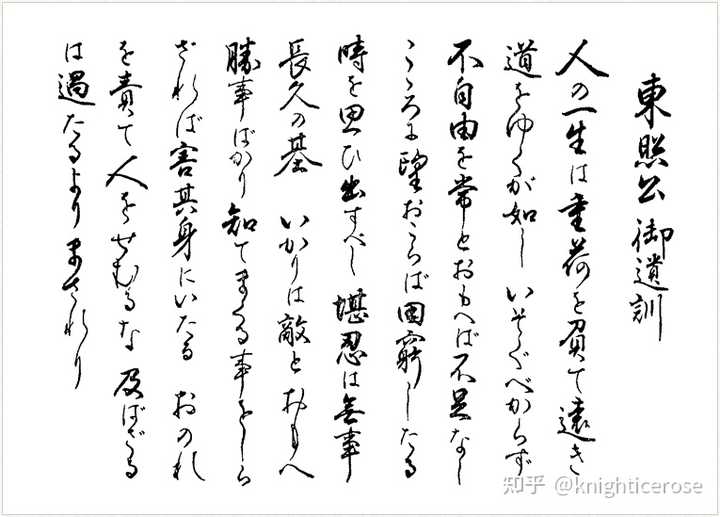 東照公御遺訓
人の一生は重荷を負て遠き
道をゆくが如し いそぐべからず
不自由を常とおもへば不足なし
こゝろに望おこらば困窮したる
時を思ひ出すべし 堪忍は無事
長久の基 いかりは敵とおもへ
勝事ばかり知てまくる事をしら
ざれば害其身にいたる おのれ
を責て人をせむるな 及ばざる
は過たるよりまされり
知乎 @knighticerose